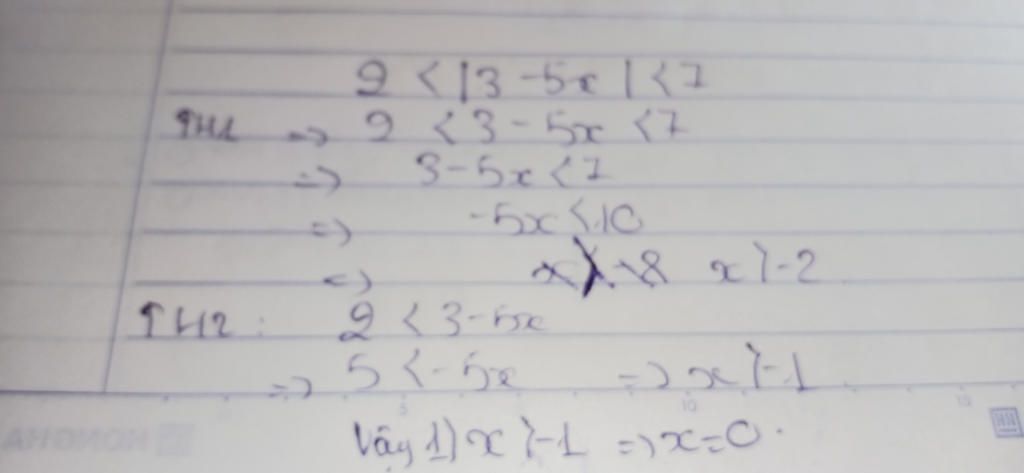 2 < |3 - 5x| < 7
TH1 => 2 < 3 - 5x < 7
=> 3 - 5x < 7
=> -5x < 10
<=> x > -2
TH2: 2 < 3 - 5x
=> 5 < -5x => x > -1
Vậy 1) x > -1 => x = 0.
5 10 15